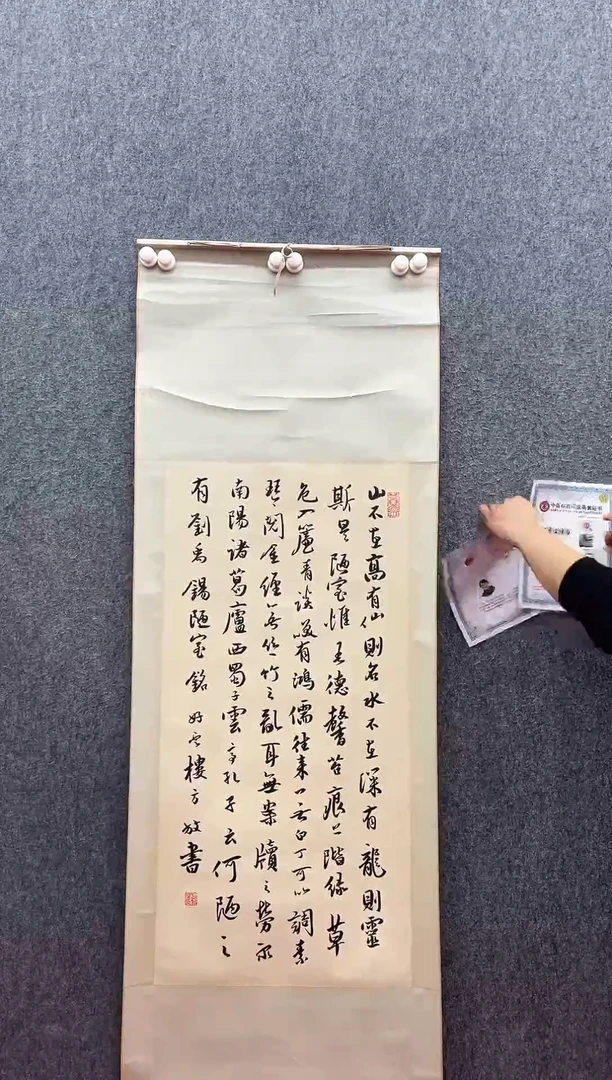 山不在高有仙則名水不在深有龍則靈
斯是陋室惟吾德馨苔痕上階緑草
色入簾青談笑有鴻儒往来无白丁可以調素
琴閲金經無絲竹之亂耳無案牘之勞形
南陽諸葛廬西蜀子雲亭孔子云何陋之
有劉禹錫陋室銘 好雲樓方放書